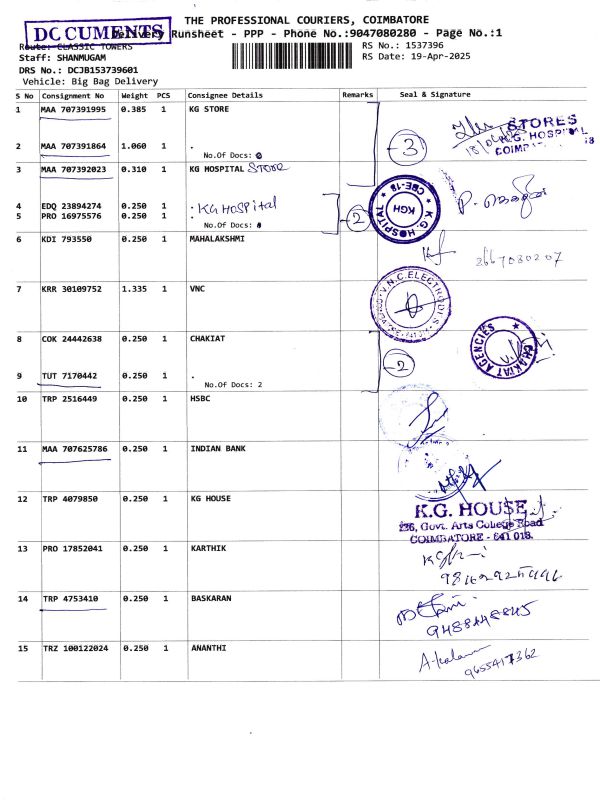 THE PROFESSIONAL COURIERS, COIMBATORE
DOCUMENTS
Delivery Runsheet - PPP - Phone No.:9047080280 - Page No.:1
Route: CLASSIC TOWERS
RS No.: 1537396
Staff: SHANMUGAM
RS Date: 19-Apr-2025
DRS No.: DCJB153739601
Vehicle: Big Bag Delivery
S No Consignment No Weight PCS Consignee Details Remarks Seal & Signature
1 MAA 707391995 0.385 1 KG STORE
STORES
K.G. HOSPITAL
2 MAA 707391864 1.060 1 .
No.Of Docs:
3
3 MAA 707392023 0.310 1 KG HOSPITAL STORE
4 EDQ 23894274 0.250 1 . KG HOSPITAL
5 PRO 16975576 0.250 1 .
No.Of Docs:
2
K.G. HOSPITAL
CBE-18
KGH
6 KDI 793550 0.250 1 MAHALAKSHMI
2667080207
7 KRR 30109752 1.335 1 VNC
V.N.C. ELECTRODES
8 COK 24442638 0.250 1 CHAKIAT
CHAKIAT AGENCIES
9 TUT 7170442 0.250 1 .
No.Of Docs: 2
2
10 TRP 2516449 0.250 1 HSBC
11 MAA 707625786 0.250 1 INDIAN BANK
12 TRP 4079850 0.250 1 KG HOUSE
K.G. HOUSE
236, Govt. Arts College Road
COIMBATORE - 641 018.
13 PRO 17852041 0.250 1 KARTHIK
14 TRP 4753410 0.250 1 BASKARAN
15 TRZ 100122024 0.250 1 ANANTHI
9655417362